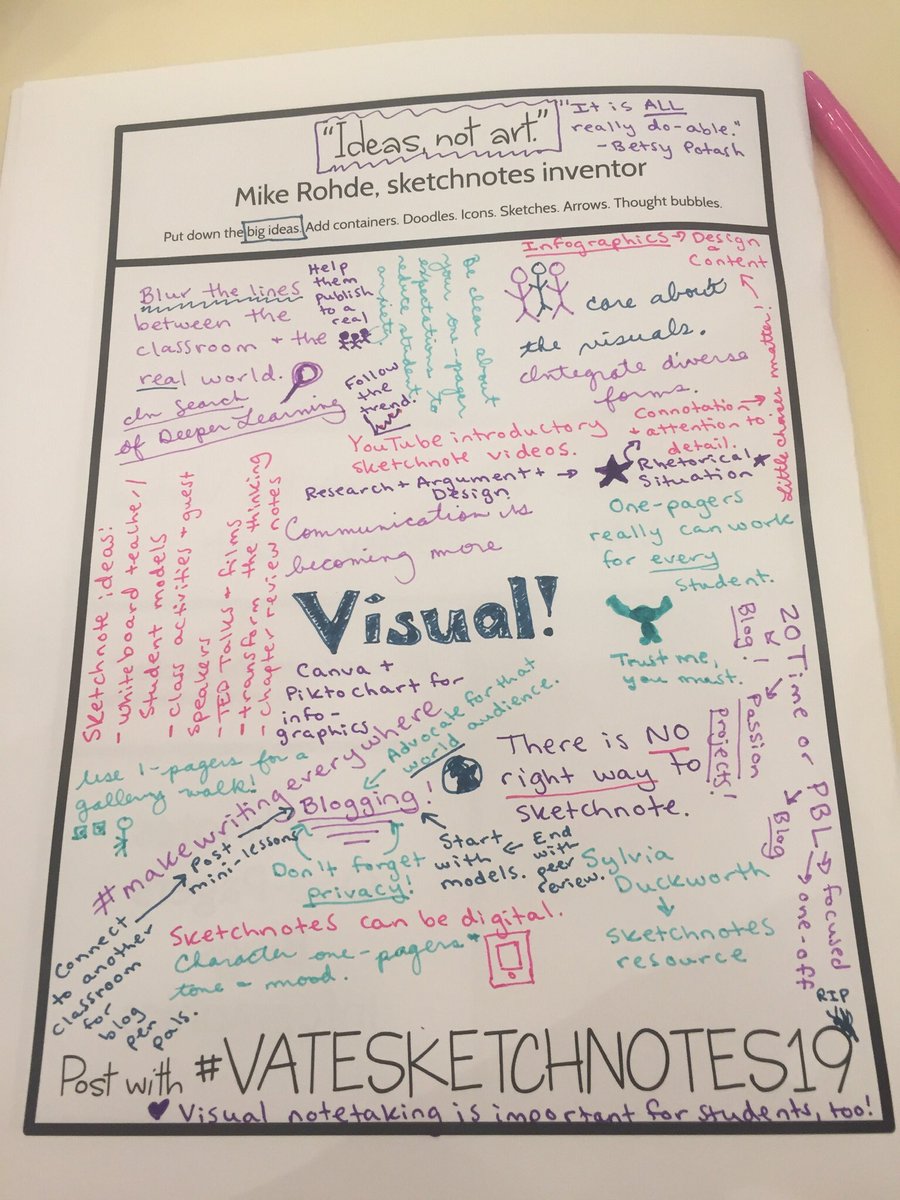 "Ideas, not art."
"It is ALL
really do-able."
- Betsy Potash
Mike Rohde, sketchnotes inventor
Put down the big ideas. Add containers. Doodles. Icons. Sketches. Arrows. Thought bubbles.
Blur the lines
between the
classroom + the
real world.
In Search
of Deeper Learning
Help
them
publish
to a
real
Follow
the
trend.
Be clear about
your one-pager
expectations to
reduce student
anxiety
Infographics → Design
+
Content
care about
the visuals.
Integrate diverse
forms.
Little choices matter!
Connotation
+ attention to
detail.
YouTube introductory
sketchnote videos.
Research + Argument +
Design
Rhetorical
Situation
Communication is
becoming more
Visual!
One-pagers
really can work
for every
student.
Trust me,
you must.
Sketchnote ideas:
- Whiteboard teacher/
student models
- class activities + guest
speakers
- TED Talks + films
- transform the thinking
- chapter review notes
Canva +
Piktochart for
info-
graphics
Advocate for that
world audience.
#makewritingeverywhere
Use 1-pagers for a
gallery walk!
Blogging!
There is NO
right way to
sketchnote.
20Time or PBL → focused
Blog!
Passion
projects!
Blog
→ one-off
RIP
Post
mini-lessons
Don't forget
privacy!
Start
with
models.
End
with
peer
review.
Sylvia
Duckworth
sketchnotes
resource
Connect
to another
classroom
for
blog
pen
pals.
Sketchnotes can be digital.
Character one-pagers *
tone + mood.
Post with #VATESKETCHNOTES19
♥ Visual notetaking is important for students, too!